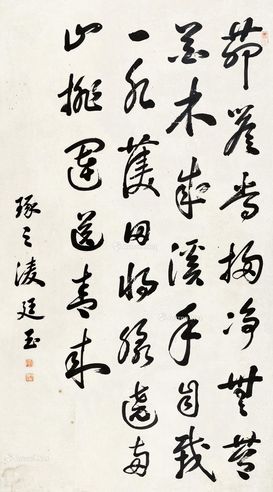 茆簷常掃淨無苔
花木成溪手自栽
一水護田將綠繞兩
山排闥送青來
琢之凌廷玉